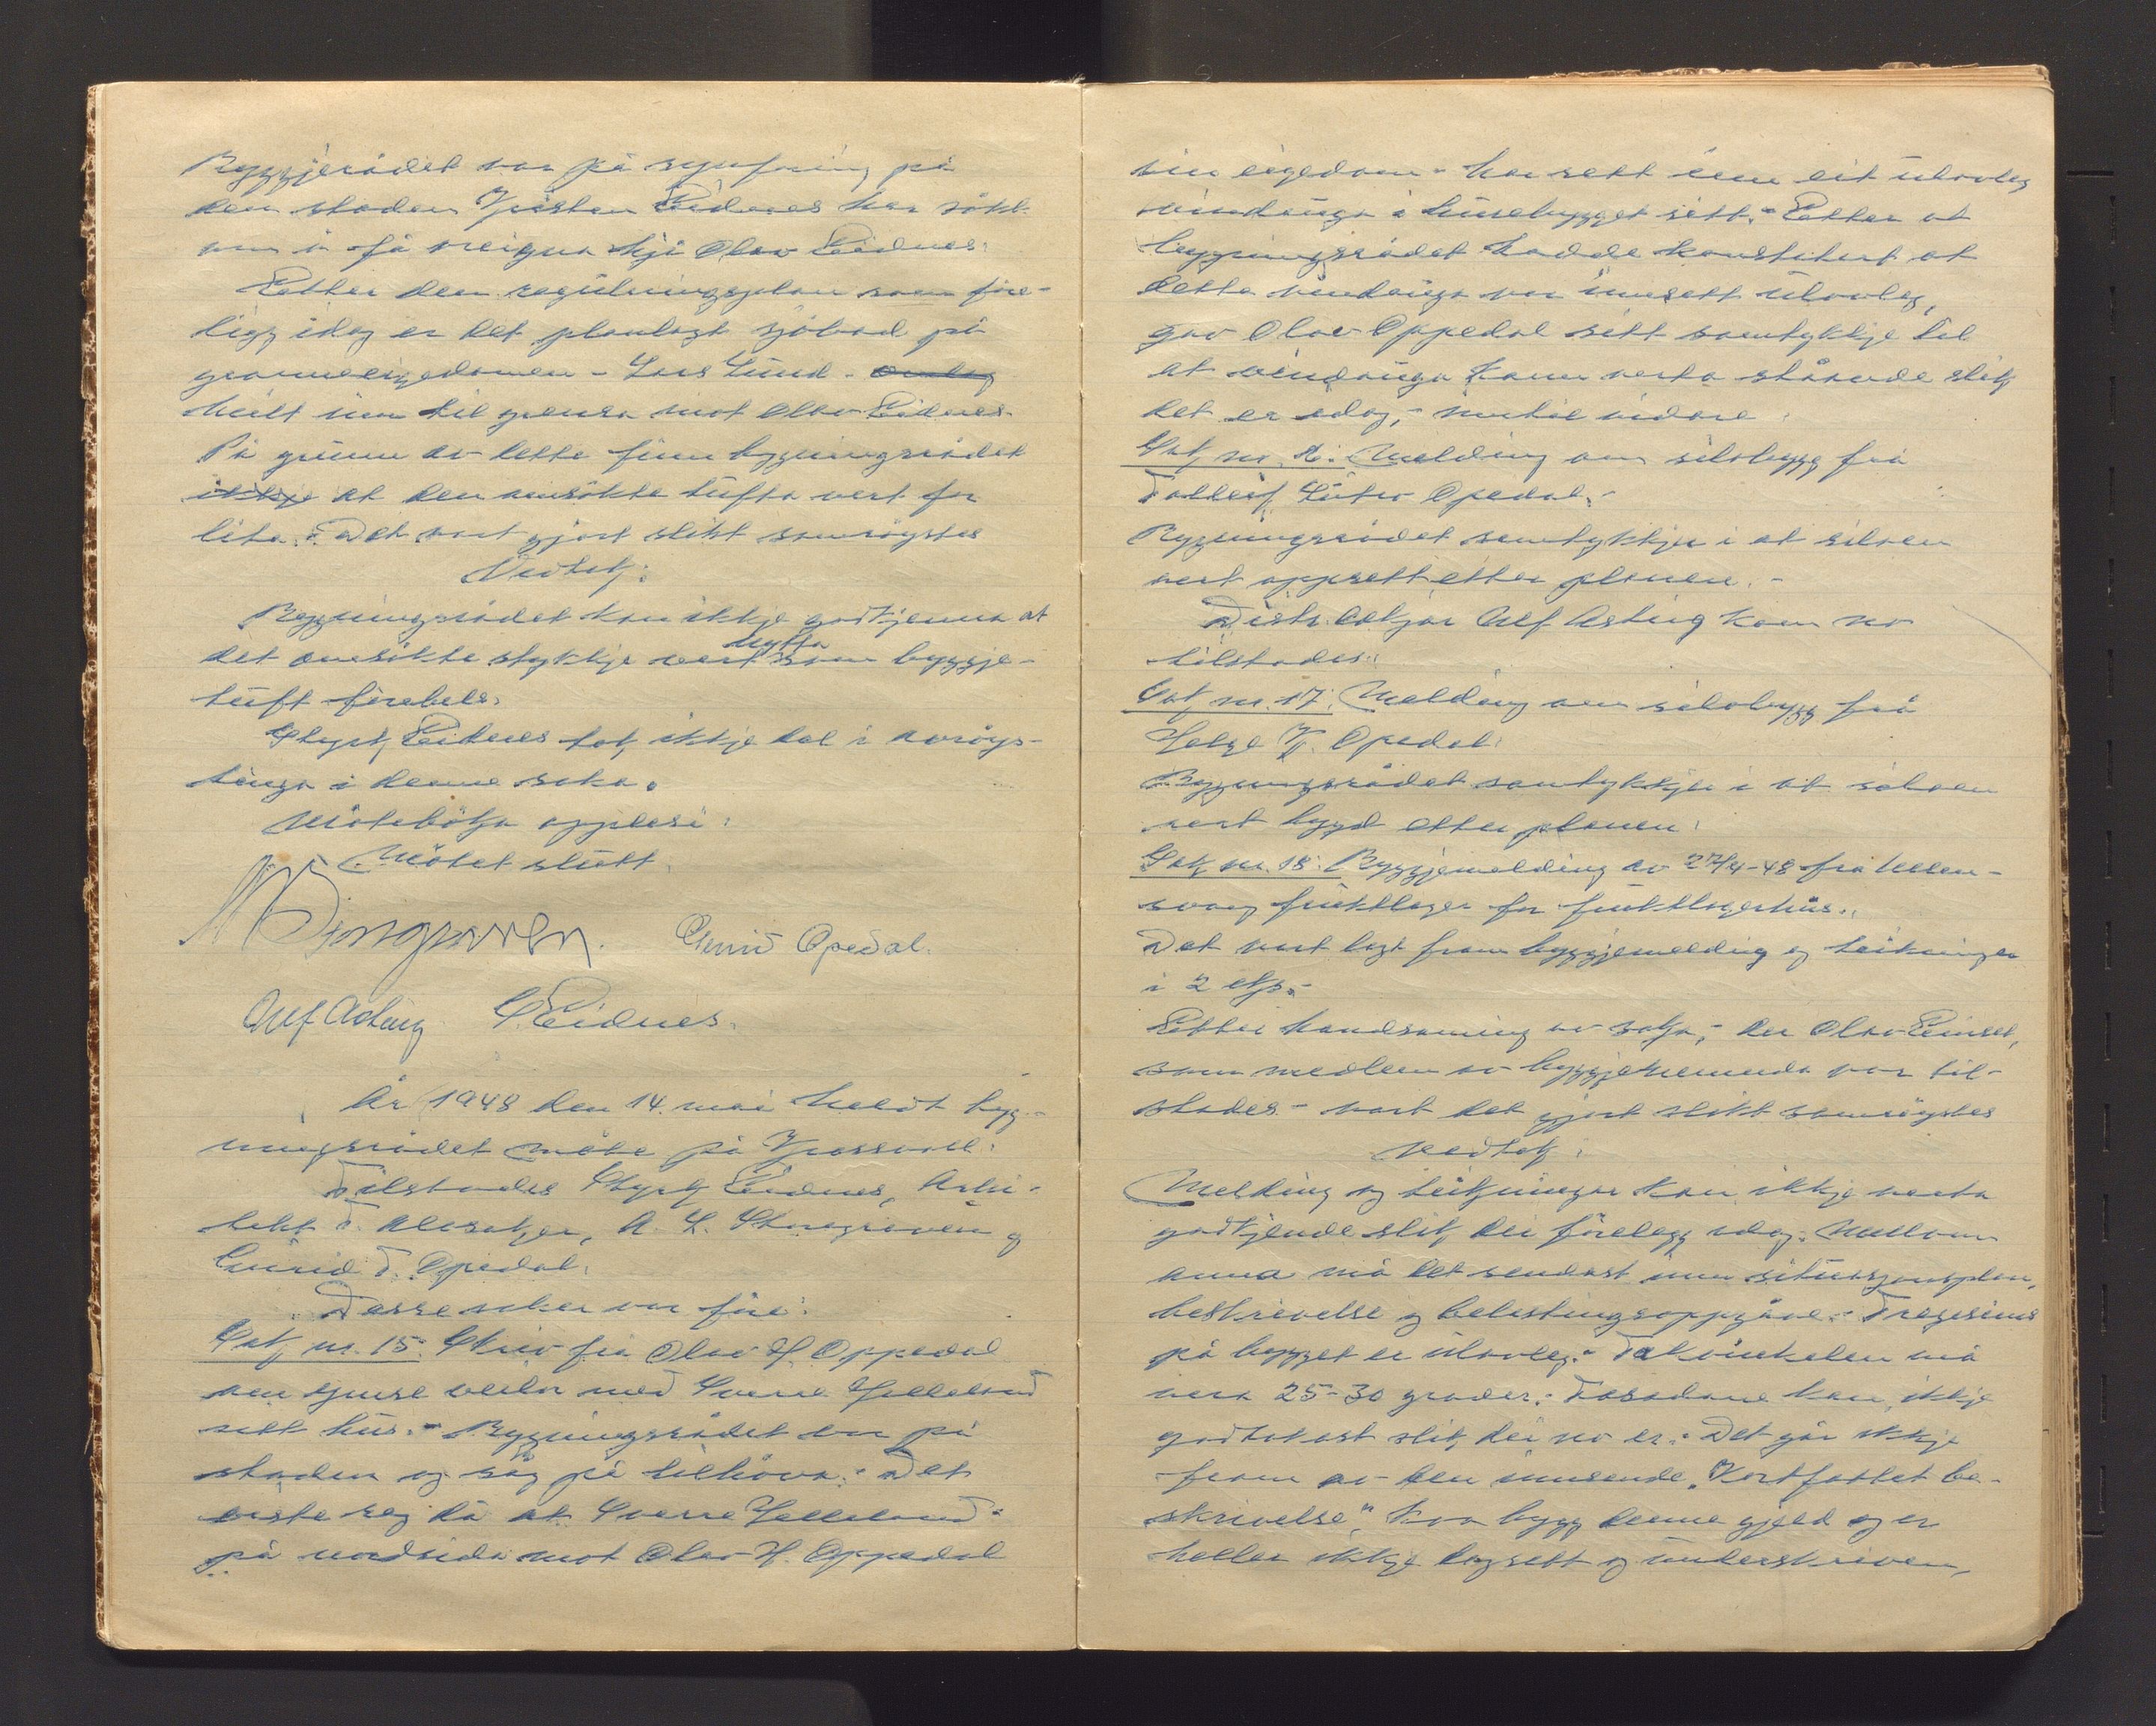 Byggjerådet var på synfaring på
den staden Kristen Eidnes har søkt
um å få oreigna hjå Olav Eidnes.
Etter den reguleringsplan som fyre-
ligg idag er det planlagt sjöbad på
grannecigedomen - Lars Lund.
heilt inn til grensa mot Olav Eidnes.
På grunn av dette finn bygningsrådet
ikkje at den umsökte tufta vert for
lita. Det vart gjort slikt samröystes
Vedtak:
Bygningsrådet kan ikkje godkjenna at
det umsökte stykkje vert nytta som byggje-
tuft fyrebels.
Styrk Eidnes tok ikkje del i avröys-
tinga i denne saka.
Möteboka opplesi.
Mötet slutt.
Gunvid Opedal.
Alf Asting S Eidnes.
År 1948 den 14. mai heldt byg-
ningsrådet möte på Grassvoll.
Tilstades Styrk Eidnes, Arki-
tekt T. Alsaker, A. L. Skregraven og
Gunvid T. Opedal.
Desse saker var fyre:
Sak nr. 15. Skriv frå Olav H. Oppedal
um ymse veilor med Sverre Helleland
sitt hus. - Bygningsrådet var på
staden og såg på tilhöva. Det
viste seg då at Sverre Helleland -
på nordsida mot Olav H. Oppedal
sin eigedom - har sett inn eit ulovleg
vindauga i husebygget sitt. - Etter at
bygningsrådet hadde konstatert at
dette vindauga var innsett ulovleg,
gav Olav Oppedal sitt samtykkje til
at vindauga kann verta ståande slik
det er idag, - inntil vidare.
Sak nr. Melding um silobygg frå
Tolleif Opedal. -
Bygningsrådet samtykkjer i at siloen
vert oppsett etter planen. -
Distr. Alf Asting kom no
tilstades.
Sak nr. 17. Melding um silobygg frå
Helge K. Opedal.
Bygningsrådet samtykkjer i at siloen
vert bygd etter planen.
Sak nr. 18. Byggjemelding av 27/4-48 frå Ullens-
vang fruktlager for fruktlagerhus.
Det vart lagt fram byggjemelding og teikningar
i 2 eks. -
Etter handsaming av saka, - der Olav Einset,
som medlem av byggjenemnda var til-
stades - vart det gjort slikt samröystes
vedtak:
Melding og teikningar kan ikkje verta
godkjende slik dei fyrelegg idag. Mellom
anna må det sendast inn situasjonsplan,
beskrivelse og belastingsoppgåve.
på bygget er ulovleg. Takvinkelen må
vera 25-30 grader. Fasadane kan ikkje
godtakast slik dei no er. Det går ikkje
fram av den innsende „Kortfattet be-
skrivelse" kva bygg denne gjeld og er
heller ikkje dagsett og underskriven,